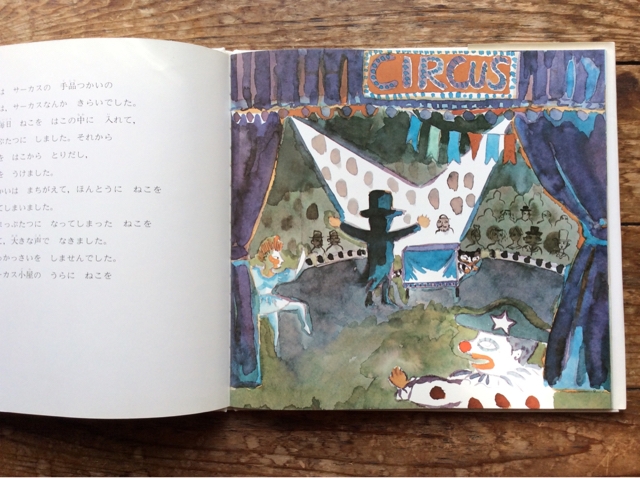 は サーカスの 手品つかいの
は、サーカスなんか きらいでした。
毎日 ねこを はこの中に 入れて、
ぷたつに しました。それから
を はこから とりだし、
を うけました。
かいは まちがえて、ほんとうに ねこを
てしまいました。
まっぷたつに なってしまった ねこを
て、大きな声で なきました。
かっさいを しませんでした。
ーカス小屋の うらに ねこを
CIRCUS